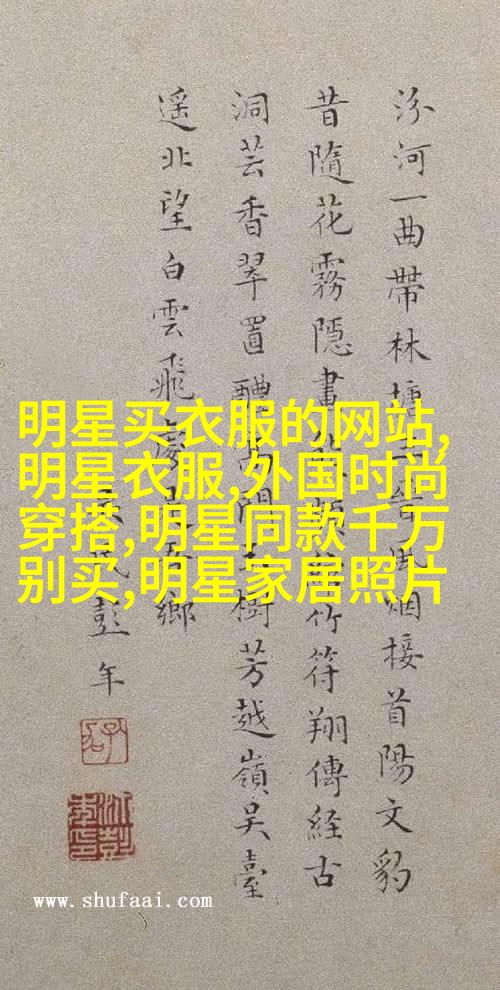 汾河一曲帶林烟接首陽文豹
昔隨花霧隱畫竹符翔傳經古
洞芸香翠置醴樹芳越嶺吳臺
遥北望白雲飛處鄉
彭年
明星买衣服的网站,
明星衣服,外国时尚
穿搭,明星同款千万
别买,明星家居照片
www.shufaai.com